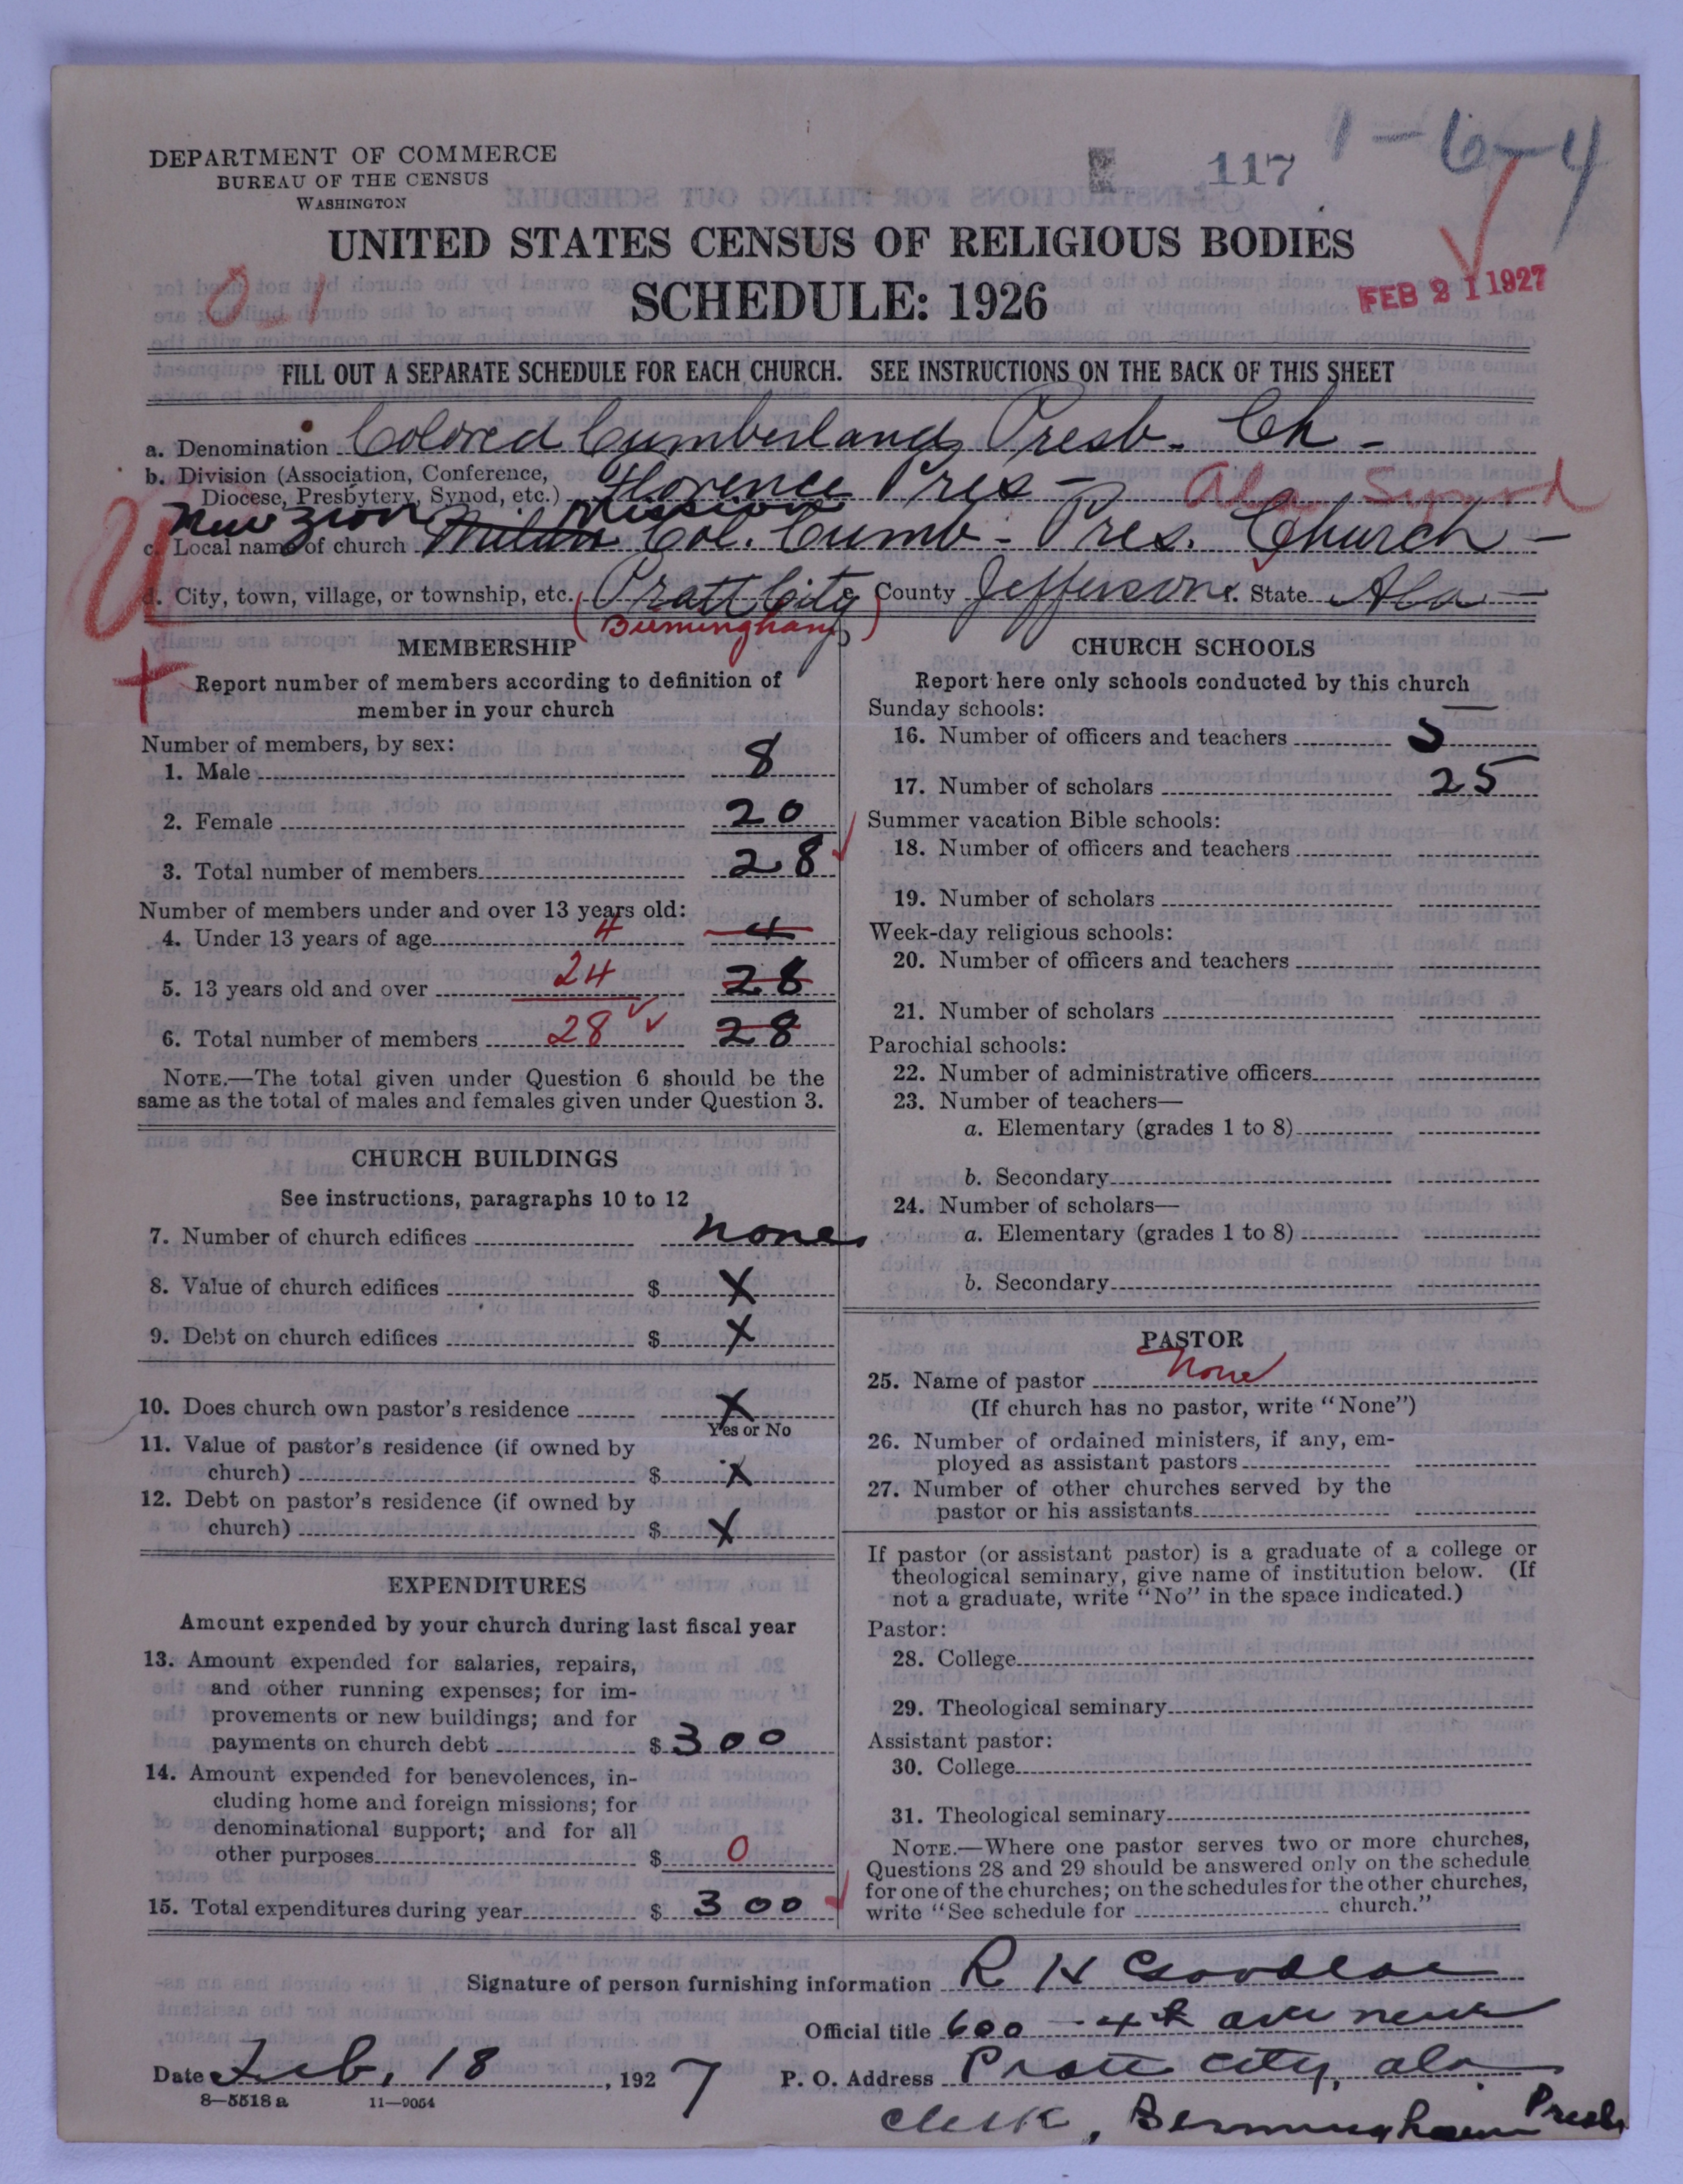 DEPARTMENT OF COMMERCE
BUREAU OF THE CENSUS
WASHINGTON
117
1-6-4
UNITED STATES CENSUS OF RELIGIOUS BODIES
SCHEDULE: 1926
0-1
FEB 21 1927
FILL OUT A SEPARATE SCHEDULE FOR EACH CHURCH. SEE INSTRUCTIONS ON THE BACK OF THIS SHEET
a. Denomination Colored Cumberland Presb. Ch -
b. Division (Association, Conference,
Diocese, Presbytery, Synod, etc.) Florence Pres - Ala Synod
New Zion Mission
c. Local name of church Col. Cumb - Pres. Church -
U
d. City, town, village, or township, etc. Pratt City County Jefferson State Ala -
(Birmingham)
MEMBERSHIP
Report number of members according to definition of
member in your church
Number of members, by sex:
1. Male 8
2. Female 20
3. Total number of members 28
Number of members under and over 13 years old:
4. Under 13 years of age 4 4
5. 13 years old and over 24 28
6. Total number of members 28 28
NOTE.—The total given under Question 6 should be the
same as the total of males and females given under Question 3.
CHURCH BUILDINGS
See instructions, paragraphs 10 to 12
7. Number of church edifices none
8. Value of church edifices $ X
9. Debt on church edifices $ X
10. Does church own pastor's residence X
Yes or No
11. Value of pastor's residence (if owned by
church) $ X
12. Debt on pastor's residence (if owned by
church) $ X
EXPENDITURES
Amount expended by your church during last fiscal year
13. Amount expended for salaries, repairs,
and other running expenses; for im-
provements or new buildings; and for
payments on church debt $ 300
14. Amount expended for benevolences, in-
cluding home and foreign missions; for
denominational support; and for all
other purposes $ 0
15. Total expenditures during year $ 300
CHURCH SCHOOLS
Report here only schools conducted by this church
Sunday schools:
16. Number of officers and teachers 5
17. Number of scholars 25
Summer vacation Bible schools:
18. Number of officers and teachers
19. Number of scholars
Week-day religious schools:
20. Number of officers and teachers
21. Number of scholars
Parochial schools:
22. Number of administrative officers
23. Number of teachers—
a. Elementary (grades 1 to 8)
b. Secondary
24. Number of scholars—
a. Elementary (grades 1 to 8)
b. Secondary
PASTOR
25. Name of pastor None
(If church has no pastor, write "None")
26. Number of ordained ministers, if any, em-
ployed as assistant pastors
27. Number of other churches served by the
pastor or his assistants
If pastor (or assistant pastor) is a graduate of a college or
theological seminary, give name of institution below. (If
not a graduate, write "No" in the space indicated.)
Pastor:
28. College
29. Theological seminary
Assistant pastor:
30. College
31. Theological seminary
NOTE.—Where one pastor serves two or more churches,
Questions 28 and 29 should be answered only on the schedule
for one of the churches; on the schedules for the other churches,
write "See schedule for church."
Signature of person furnishing information R H Goodloe
Official title 600 - 4th ave new
Date Feb, 18, 1927 P. O. Address Pratt city, ala
8—5518 a 11—9054
clerk, Bermingham Presb